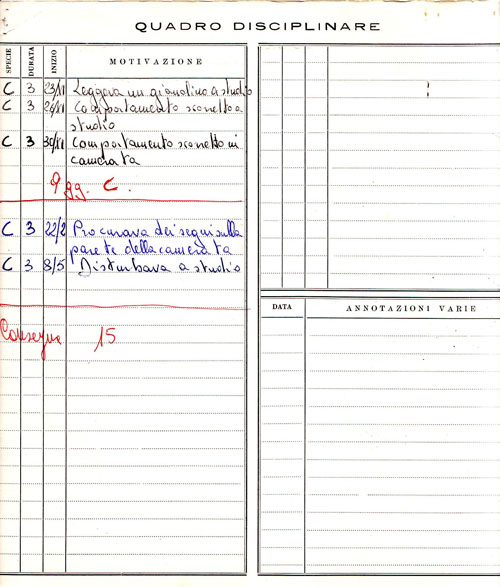 QUADRO DISCIPLINARE
SPECIE DURATA INIZIO MOTIVAZIONE
C 3 23/11 Leggeva un giornalino a studio
C 3 24/11 Comportamento scorretto a
studio
C 3 30/11 Comportamento scorretto in
camerata
9 gg. C.
C 3 22/2 Procurava dei segni sulla
parete della camerata
C 3 8/5 Disturbava a studio
Consegne 15
DATA ANNOTAZIONI VARIE